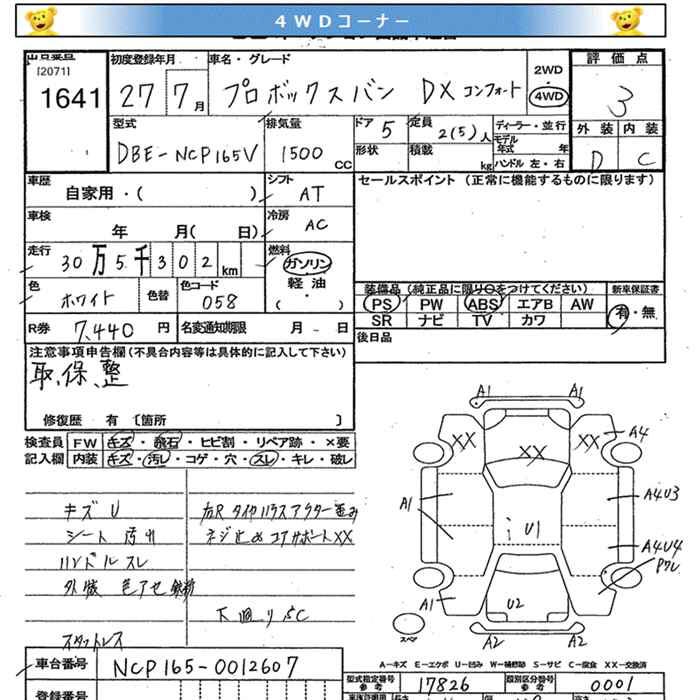 4WDコーナー
出品番号 初度登録年月 車名・グレード 2WD 評価点
[2071]
1641 27 7月 プロボックスバン DX コンフォート 4WD 3
型式 排気量 ドア 5 定員 2(5)人 ディーラー・並行 外装 内装
DBE-NCP165V 1500 CC 形状 積載 kg モデル年式 年 D C
ハンドル 左・右
車歴 シフト セールスポイント (正常に機能するものに限ります)
自家用・( ) AT
車検 冷房
年 月( 日) AC
走行 燃料
30万5千302km ガソリン
色 色替 色コード 軽油
ホワイト 058 ( ・ )
装備品(純正品に限り○をつけてください) 新車保証書
PS PW ABS エアB AW 有・無
SR ナビ TV カワ
R券 7,440円 名変通知期限 月 日
後日品
注意事項申告欄(不具合内容等は具体的に記入して下さい)
取、保、整
修復歴 有 〔箇所 〕
検査員 FW キズ・飛石・ヒビ割・リペア跡・×要
記入欄 内装 キズ・汚レ・コゲ・穴・スレ・キレ・破レ
キズ U
シート 汚れ
ハンドル スレ
外装 色アセ
スタットレス
右Rタイヤハウスアウター歪み
ネジ止め コアサポートXX
下廻りSC
A1 A1
XX XX XX A4
A1 A4U3
U1
A4U4
A1 U2
A2 A2
スペア
A-キズ E-エクボ U-凹み W-補修跡 S-サビ C-腐食 XX-交換済
車台番号 NCP165-0012607
型式指定番号 参考 17826 類別区分番号 参考 0001
登録番号